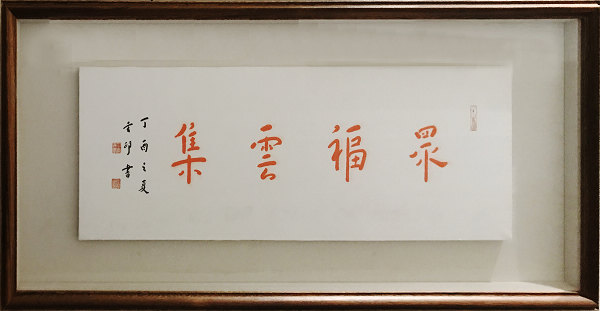 眾福雲集
丁酉之夏
書